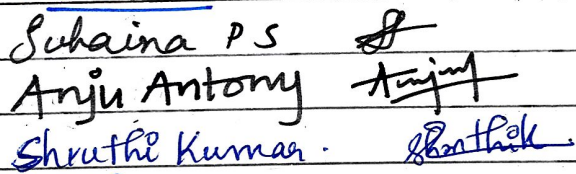 Suhaina P S
Anju Antony Anju
Shruthi Kumar. Shruthik.